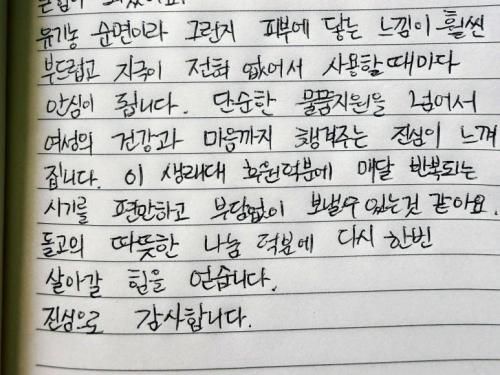 유기농 순면이라 그런지 피부에 닿는 느낌이 훨씬
부드럽고 자극이 전혀 없어서 사용할때마다
안심이 됩니다. 단순한 물품지원을 넘어서
여성의 건강과 마음까지 챙겨주는 진심이 느껴
집니다. 이 생리대 후원덕분에 매달 반복되는
시기를 편안하고 부담없이 보낼수 있는것 같아요.
돌고의 따뜻한 나눔 덕분에 다시 한번
살아갈 힘을 얻습니다.
진심으로 감사합니다.